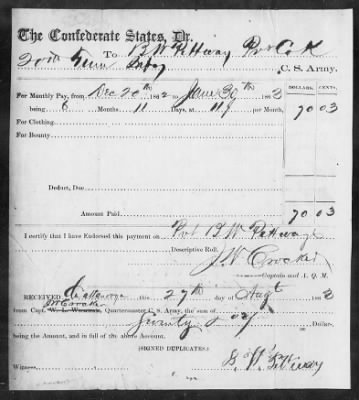 The Confederate States, Dr.
To B W Pettway Pvt Co K
20th Tenn Infty C. S. Army.
DOLLARS. CENTS.
For Monthly Pay, from Dec 20th 1862 to June 30th 1863
being 6 Months 11 Days, at 11 per Month, 70 03
For Clothing,
For Bounty
Deduct, Due
Amount Paid 70 03
I certify that I have Endorsed this payment on Pvt B W Pettway's
Descriptive Roll.
J W Crocker
Captain and A. Q. M.
RECEIVED this 27th day of Augt 1863
from Capt. W. L. Quartermaster C. S. Army, the sum of
Seventy & 03/ Dollars,
being the Amount, and in full of the above Account.
(SIGNED DUPLICATES.)
B. W. Pettway
Witness